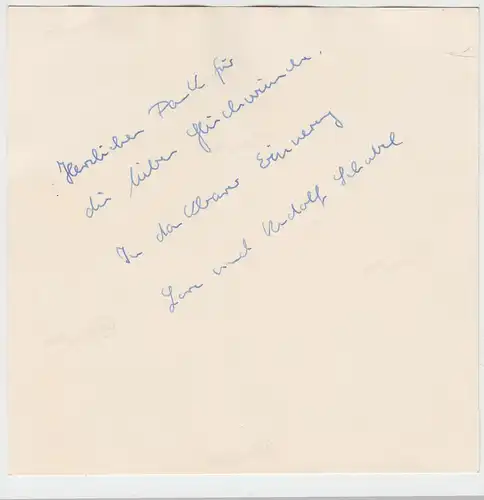 Herzlichen Dank für
die lieben Glückwünsche.
In dankbarer Erinnerung
und Rudolf Schabel